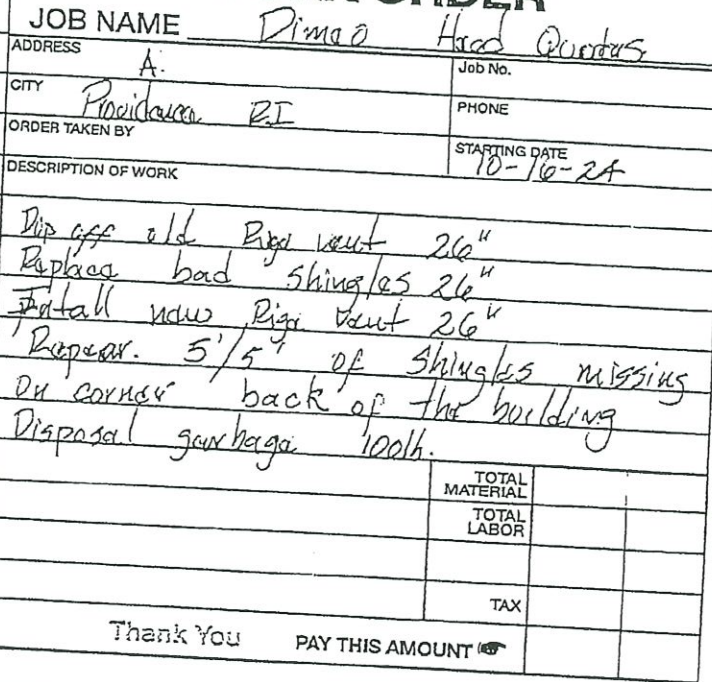 ORDER
JOB NAME Dimeo Head Quortus
ADDRESS A.
Job No.
CITY Providauca R.I
PHONE
ORDER TAKEN BY
STARTING DATE 10-16-24
DESCRIPTION OF WORK
Rip off old Rige vent 26"
Replaca bad shingles 26"
Intall new Rige vent 26"
Repear. 5'/5' of shingles missing
On corner back of the building
Disposal garbaga 100lh.
TOTAL MATERIAL
TOTAL LABOR
TAX
Thank You PAY THIS AMOUNT